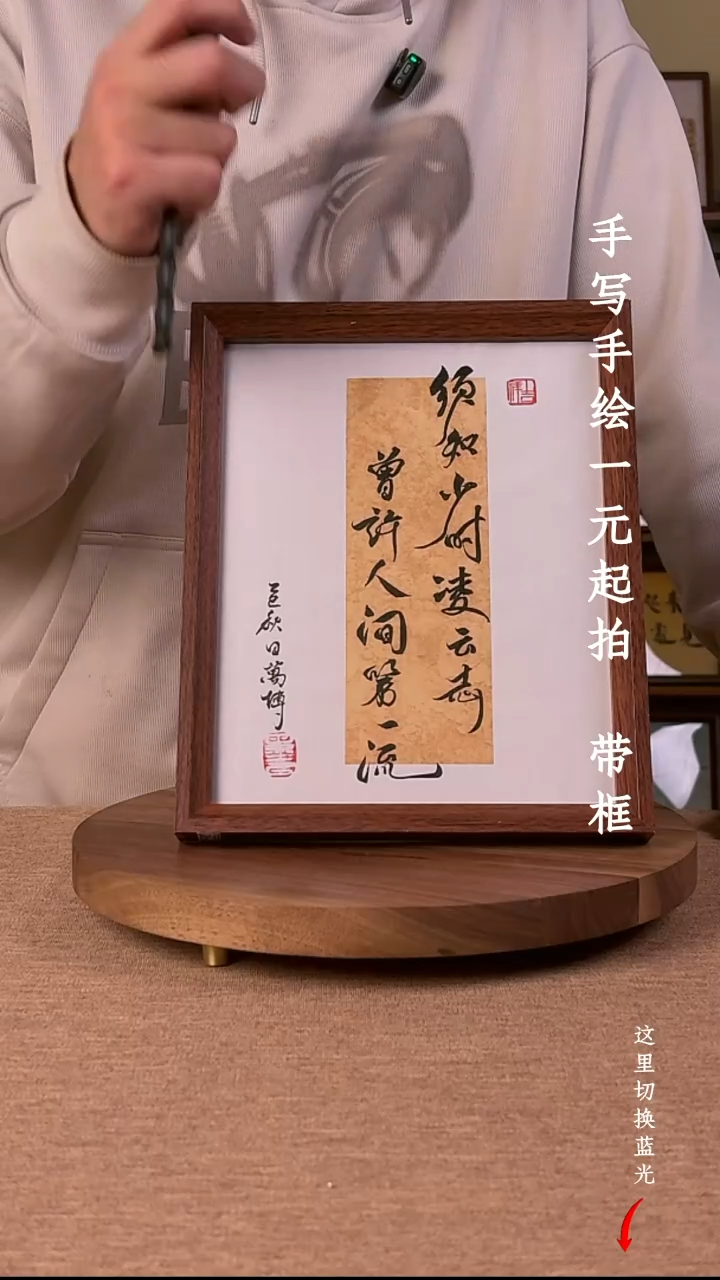 须知少时凌云志
曾許人间第一流
秋日萬博
手写手绘一元起拍 带框
这里切换蓝光